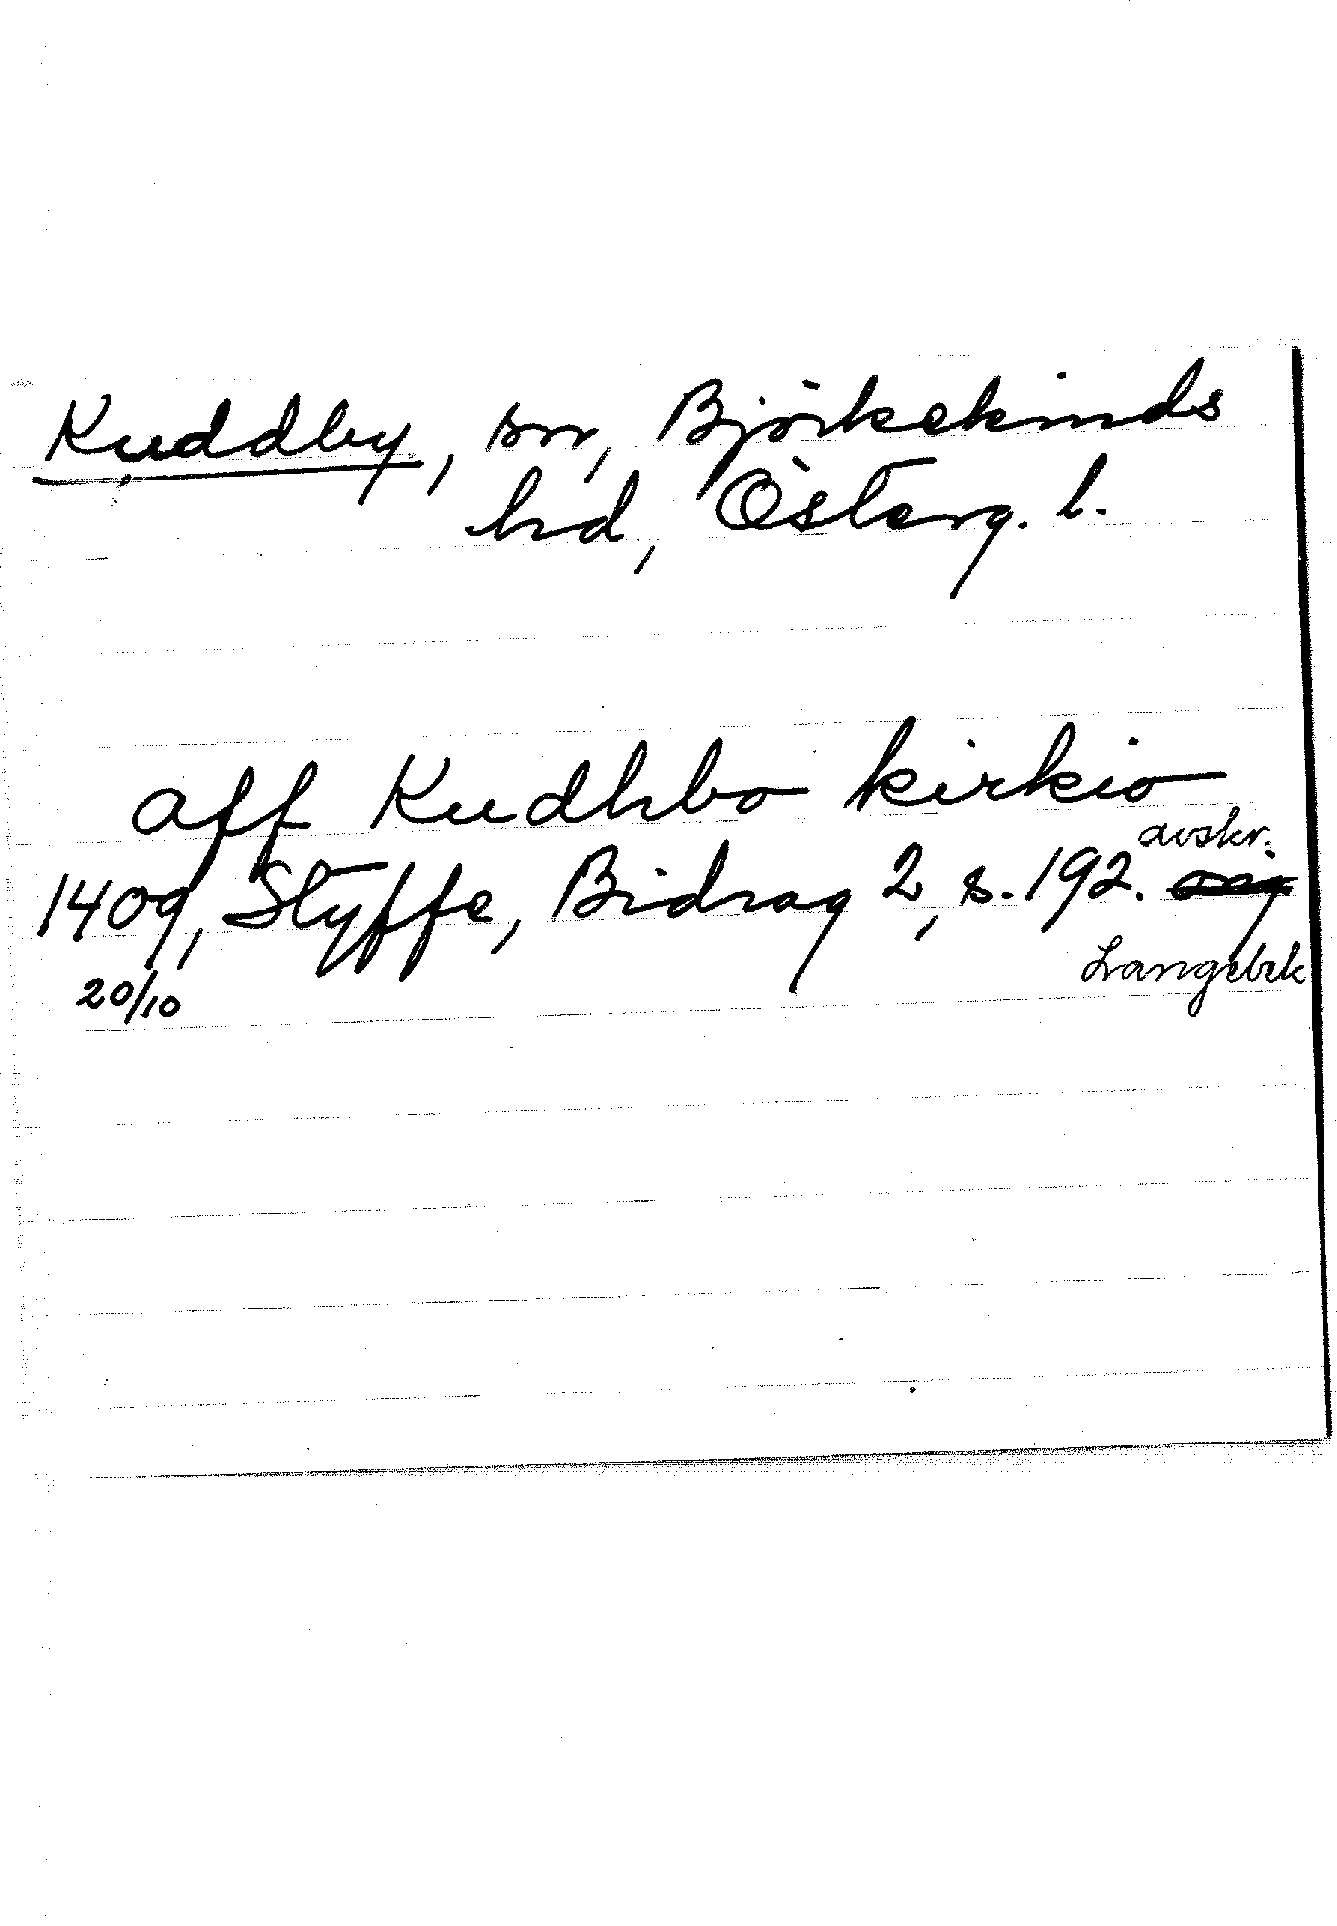 Kuddby, sn, Björkekinds
hd, Österg. l.
aff Kudhbo kirkio
1409, Styffe, Bidrag 2, s. 192. avskr.
20/10 Langebek